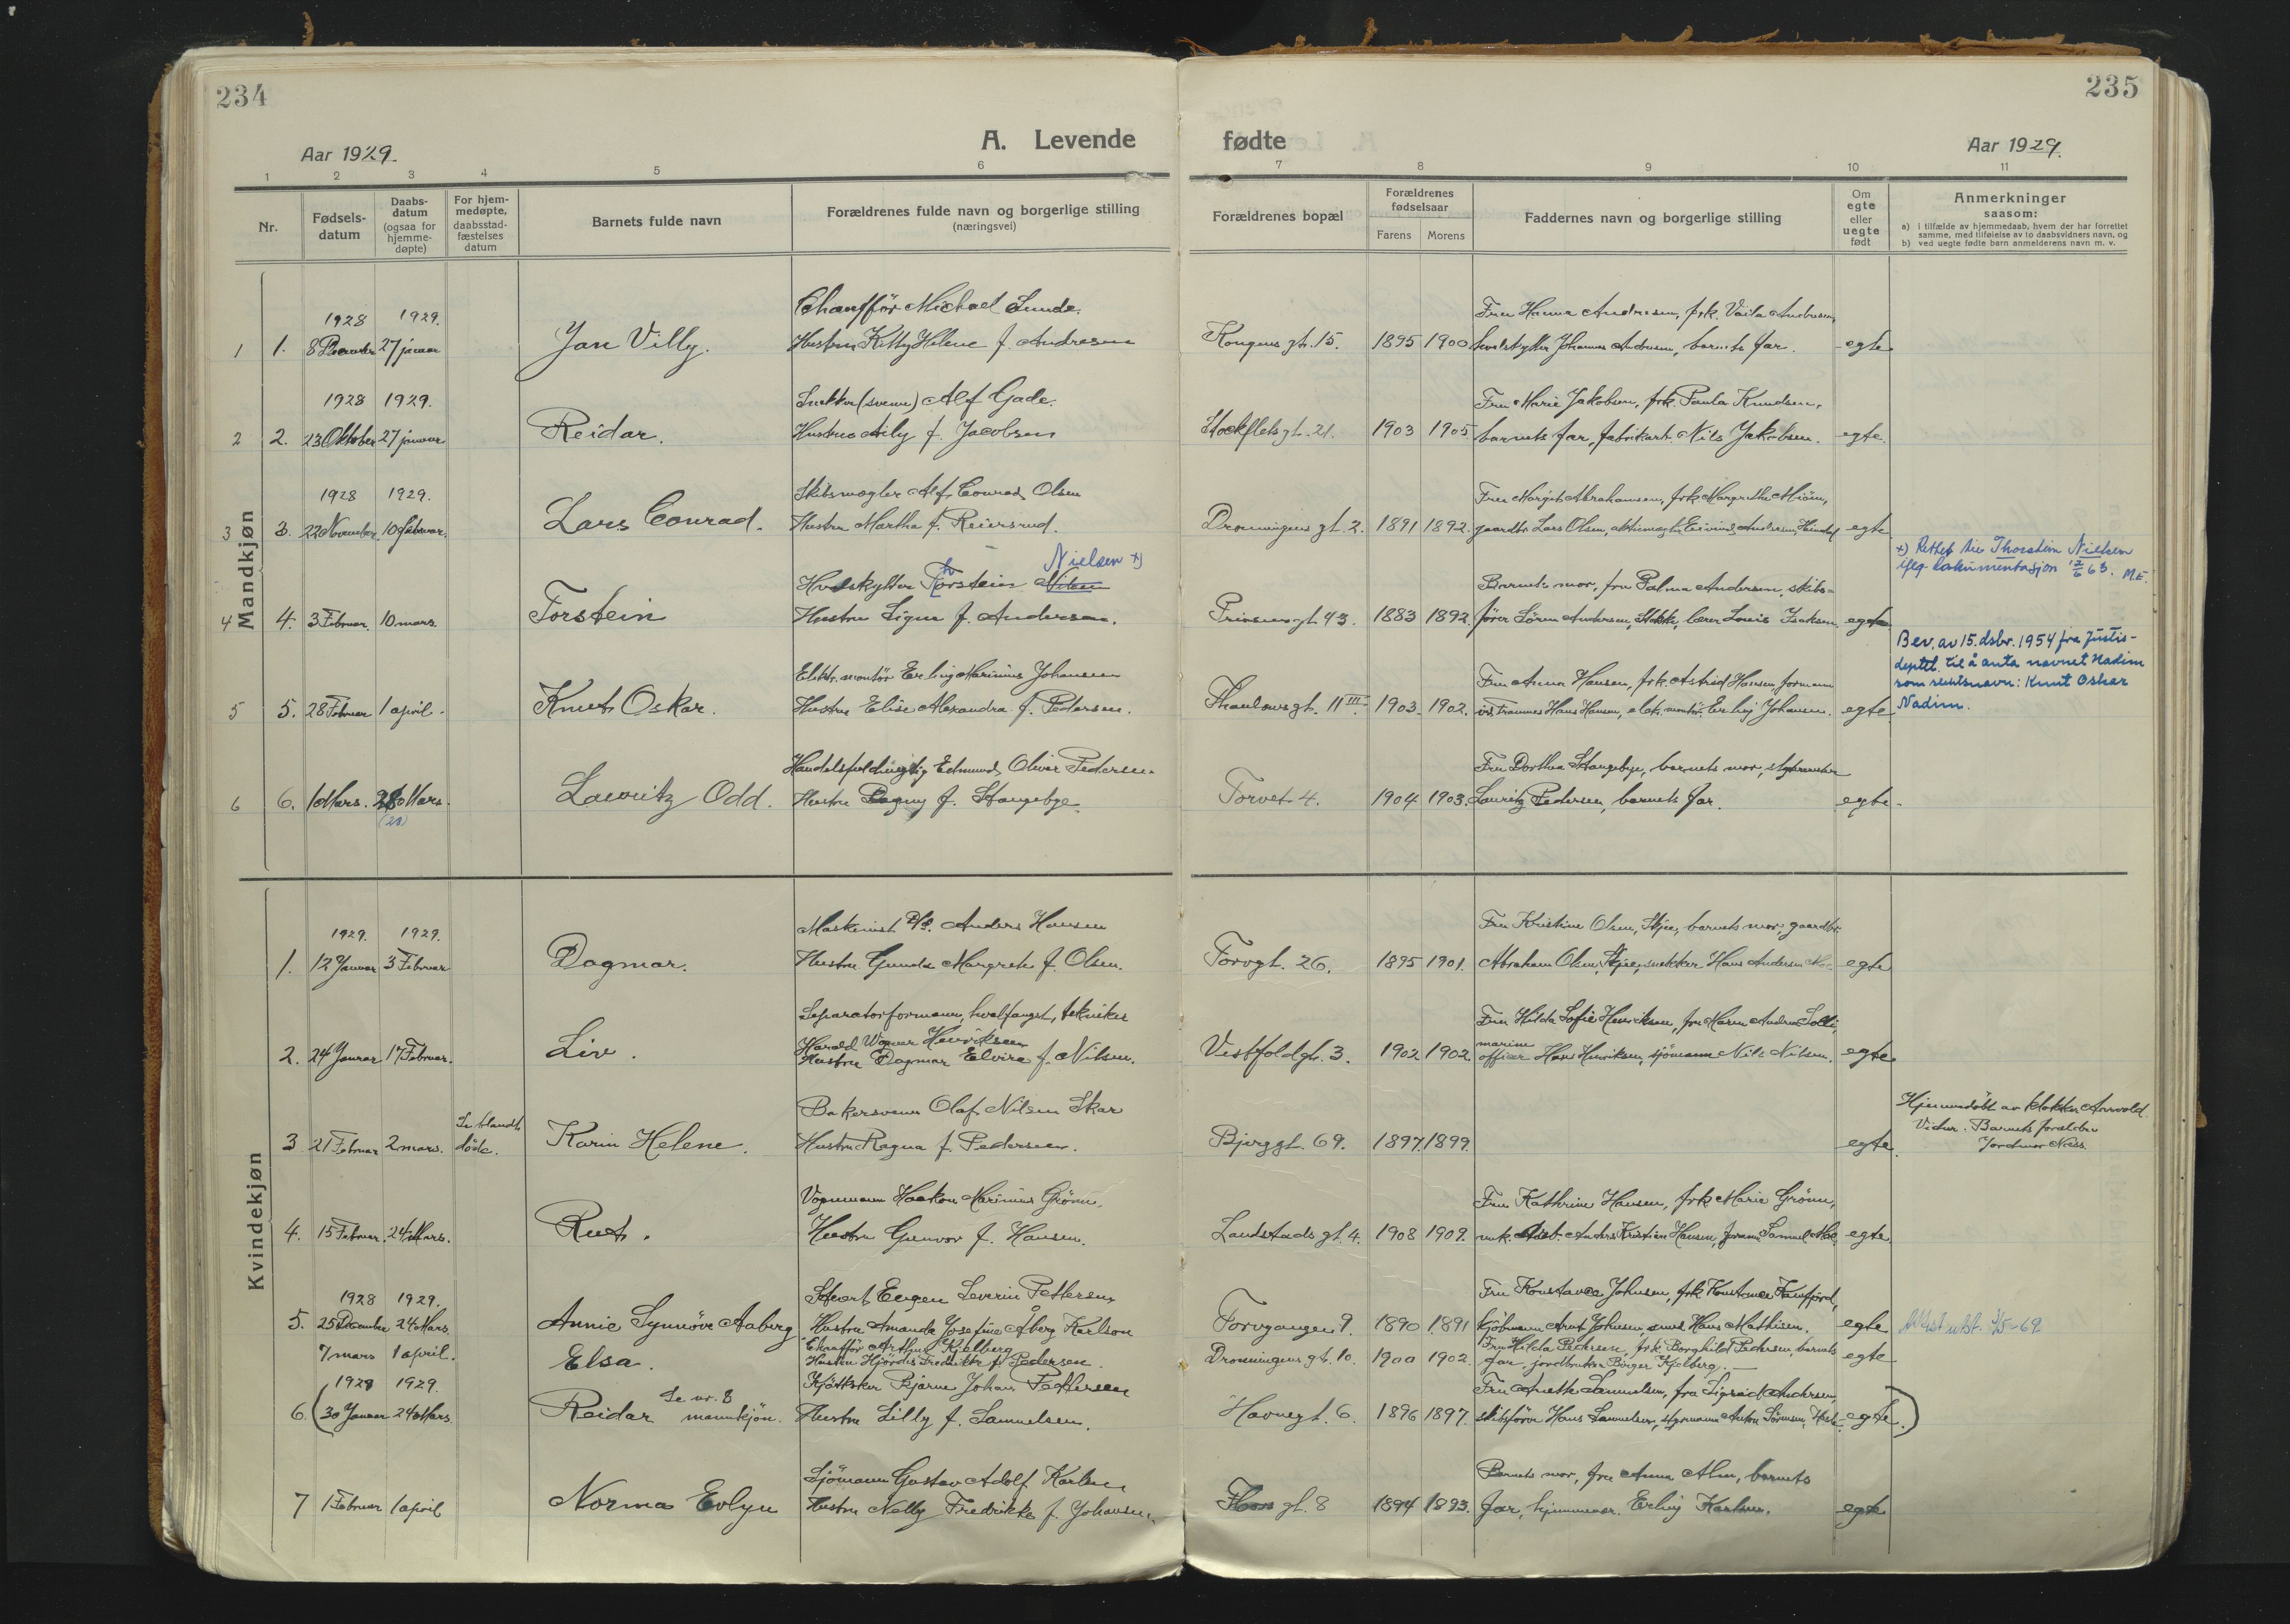 234
235
A. Levende fødte
Aar 1929.
Aar 1929.
1 2 3 4 5 6 7 8 9 10 11
Nr.
Fødsels-
datum
Daabs-
datum
(ogsaa for
hjemme-
døpte)
For hjem-
medøpte,
daabsstad-
fæstelses
datum
Barnets fulde navn
Forældrenes fulde navn og borgerlige stilling
(næringsvei)
Forældrenes bopæl
Forældrenes
fødselsaar
Farens Morens
Faddernes navn og borgerlige stilling
Om
egte
eller
uegte
født
Anmerkninger
saasom:
a) i tilfælde av hjemmedaab, hvem der har forrettet
samme, med tilføielse av to daabsvidners navn, og
b) ved uegte fødte barn anmelderens navn m. v.
Mandkjøn
1928 1929. Chauffør Michael Sunde. Fru Hanna Andresen, frk. Vaila Andresen,
1 1. 8 December 27 januar Jan Villy. Hustru Kitty Helene f. Andresen Kongens gt. 15. 1895 1900 hvalskytter Johannes Andresen, barnets far. egte
1928 1929. Snekker (svenn) Alf Gade. Fru Marie Jakobsen, frk. Paula Knudsen,
2 2. 23 Oktober 27 januar Reidar. Hustru Aily f. Jacobsen Stockflets gt. 21. 1903 1905 barnets far, fabrikarb. Nils Jakobsen. egte.
1928 1929. Skibsmegler Alf Conrad Olsen Fru Margit Abrahamsen, frk Margrethe
3 3. 22 November 10 februar. Lars Conrad. Hustru Martha f. Reiersrud. Dronningens gt. 2. 1891 1892. gaardbr. Lars Olsen, Eivind Andersen, egte
Nielsen x)
x) Rettet til Thorstein Nielsen
iflg. dokumentasjon 12/6 63. M.E.
Hvalskytter Torstein Nilsen Barnets mor, fru Palma Andersen, skibs-
4 4. 3 Februar. 10 mars. Torstein Hustru Signe f. Andersen. Prinsens gt. 43. 1883 1892. fører Søren Andersen, Stokke, lærer Louis Isaksen. egte
Bev. av 15. dsbr. 1954 fra Justis-
deptet. til å anta navnet Nadim
som slektsnavn: Knut Oskar
Nadim.
Elektr. montør Erling Marinius Johansen Fru Anna Hansen, frk. Astrid Hansen, formann
5 5. 28 Februar 1 april. Knut Oskar. Hustru Elise Alexandra f. Pedersen. Thaulows gt. 11 III. 1903 1902. Hans Hansen, elek. montør. Erling Johansen. egte
Handelsfuldmegtig Edmund Oliver Pedersen Fru Dorthea Stangebye, barnets mor,
6 6. 1 Mars. 28 Mars. Lauritz Odd. Hustru Dagny f. Stangebye. Torvet 4. 1904 1903. Lauritz Pedersen, barnets far. egte.
(28)
Kvindekjøn
1929. 1929. Maskinist Anders Hansen Fru Kristine Olsen, barnets mor, gaardbr.
1. 12 Januar 3 Februar Dagmar. Hustru Gunda Margrete f. Olsen. Torvgt. 26. 1895 1901. Abraham Olsen, snekker Hans Andersen egte
Separatorformann, hvalfangst, tekniker Fru Hilda Sofie Henriksen, fru Maren Andrea Solli,
Harald Werner Henriksen marine
2. 24 Januar 17 Februar. Liv. Hustru Dagmar Elvira f. Nilsen. Vestfoldgt. 3. 1902 1902. officer Hans Henriksen, sjömann Nils Nilsen. egte
Se blandt Bakersvenn Olaf Nilsen Skar Hjemmedöbt av klokker Arnvold.
3 21 Februar 2 mars. döde. Karin Helene. Hustru Ragna f. Pedersen. Bjerggt. 69. 1897. 1899. egte Vidner. Barnets forældre
Jordmor Næss.
Vognmann Haakon Marinius Grönn. Fru Kathrine Hansen, frk Marie Grönn,
4. 15 Februar. 24 Mars. Rut. Hustru Gunvor f. Hansen. Landstads gt. 4. 1908 1909. Anders Kristian Hansen, Samuel egte
1928 1929. Eugen Severin Pettersen Fru Konstance Johnsen, frk Konstance
5. 25 December 24 Mars. Annie Synnöve Aaberg Hustru Amanda Josefine Åberg Karlson Torvgangen 9. 1890 1891 kjöbmann Johnsen, Hans Mathisen. egte Attest utst. 7/5-69.
7 mars 1 april. Elsa. Chauffør Arthur Kjelberg Dronningens gt. 10. 1900 1902. Fru Hilda Pedersen, frk Borghild Pedersen, barnets egte
Hustru Hjördis Fredrikke f. Pedersen. far, jordbruker Birger Kjelberg.
1929 1929. Se nr. 8 Bjarne Johan Pettersen Fru Anette Samuelsen, fru Sigrid Andersen,
6. (30 Januar 24 Mars. Reidar mannkjön. Hustru Lilly f. Samuelsen. Havnegt. 6. 1896 1897. skibsfører Hans Samuelsen, styrmann Anton Sörensen, egte.)
Sjömann Gustav Adolf Karlsen Barnets mor, fru Anna Alm, barnets
7 1 Februar 1 april Norma Evlyn Hustru Nelly Fredrikke f. Johansen. gt. 8 1894 1893. far, Erling Karlsen. egte